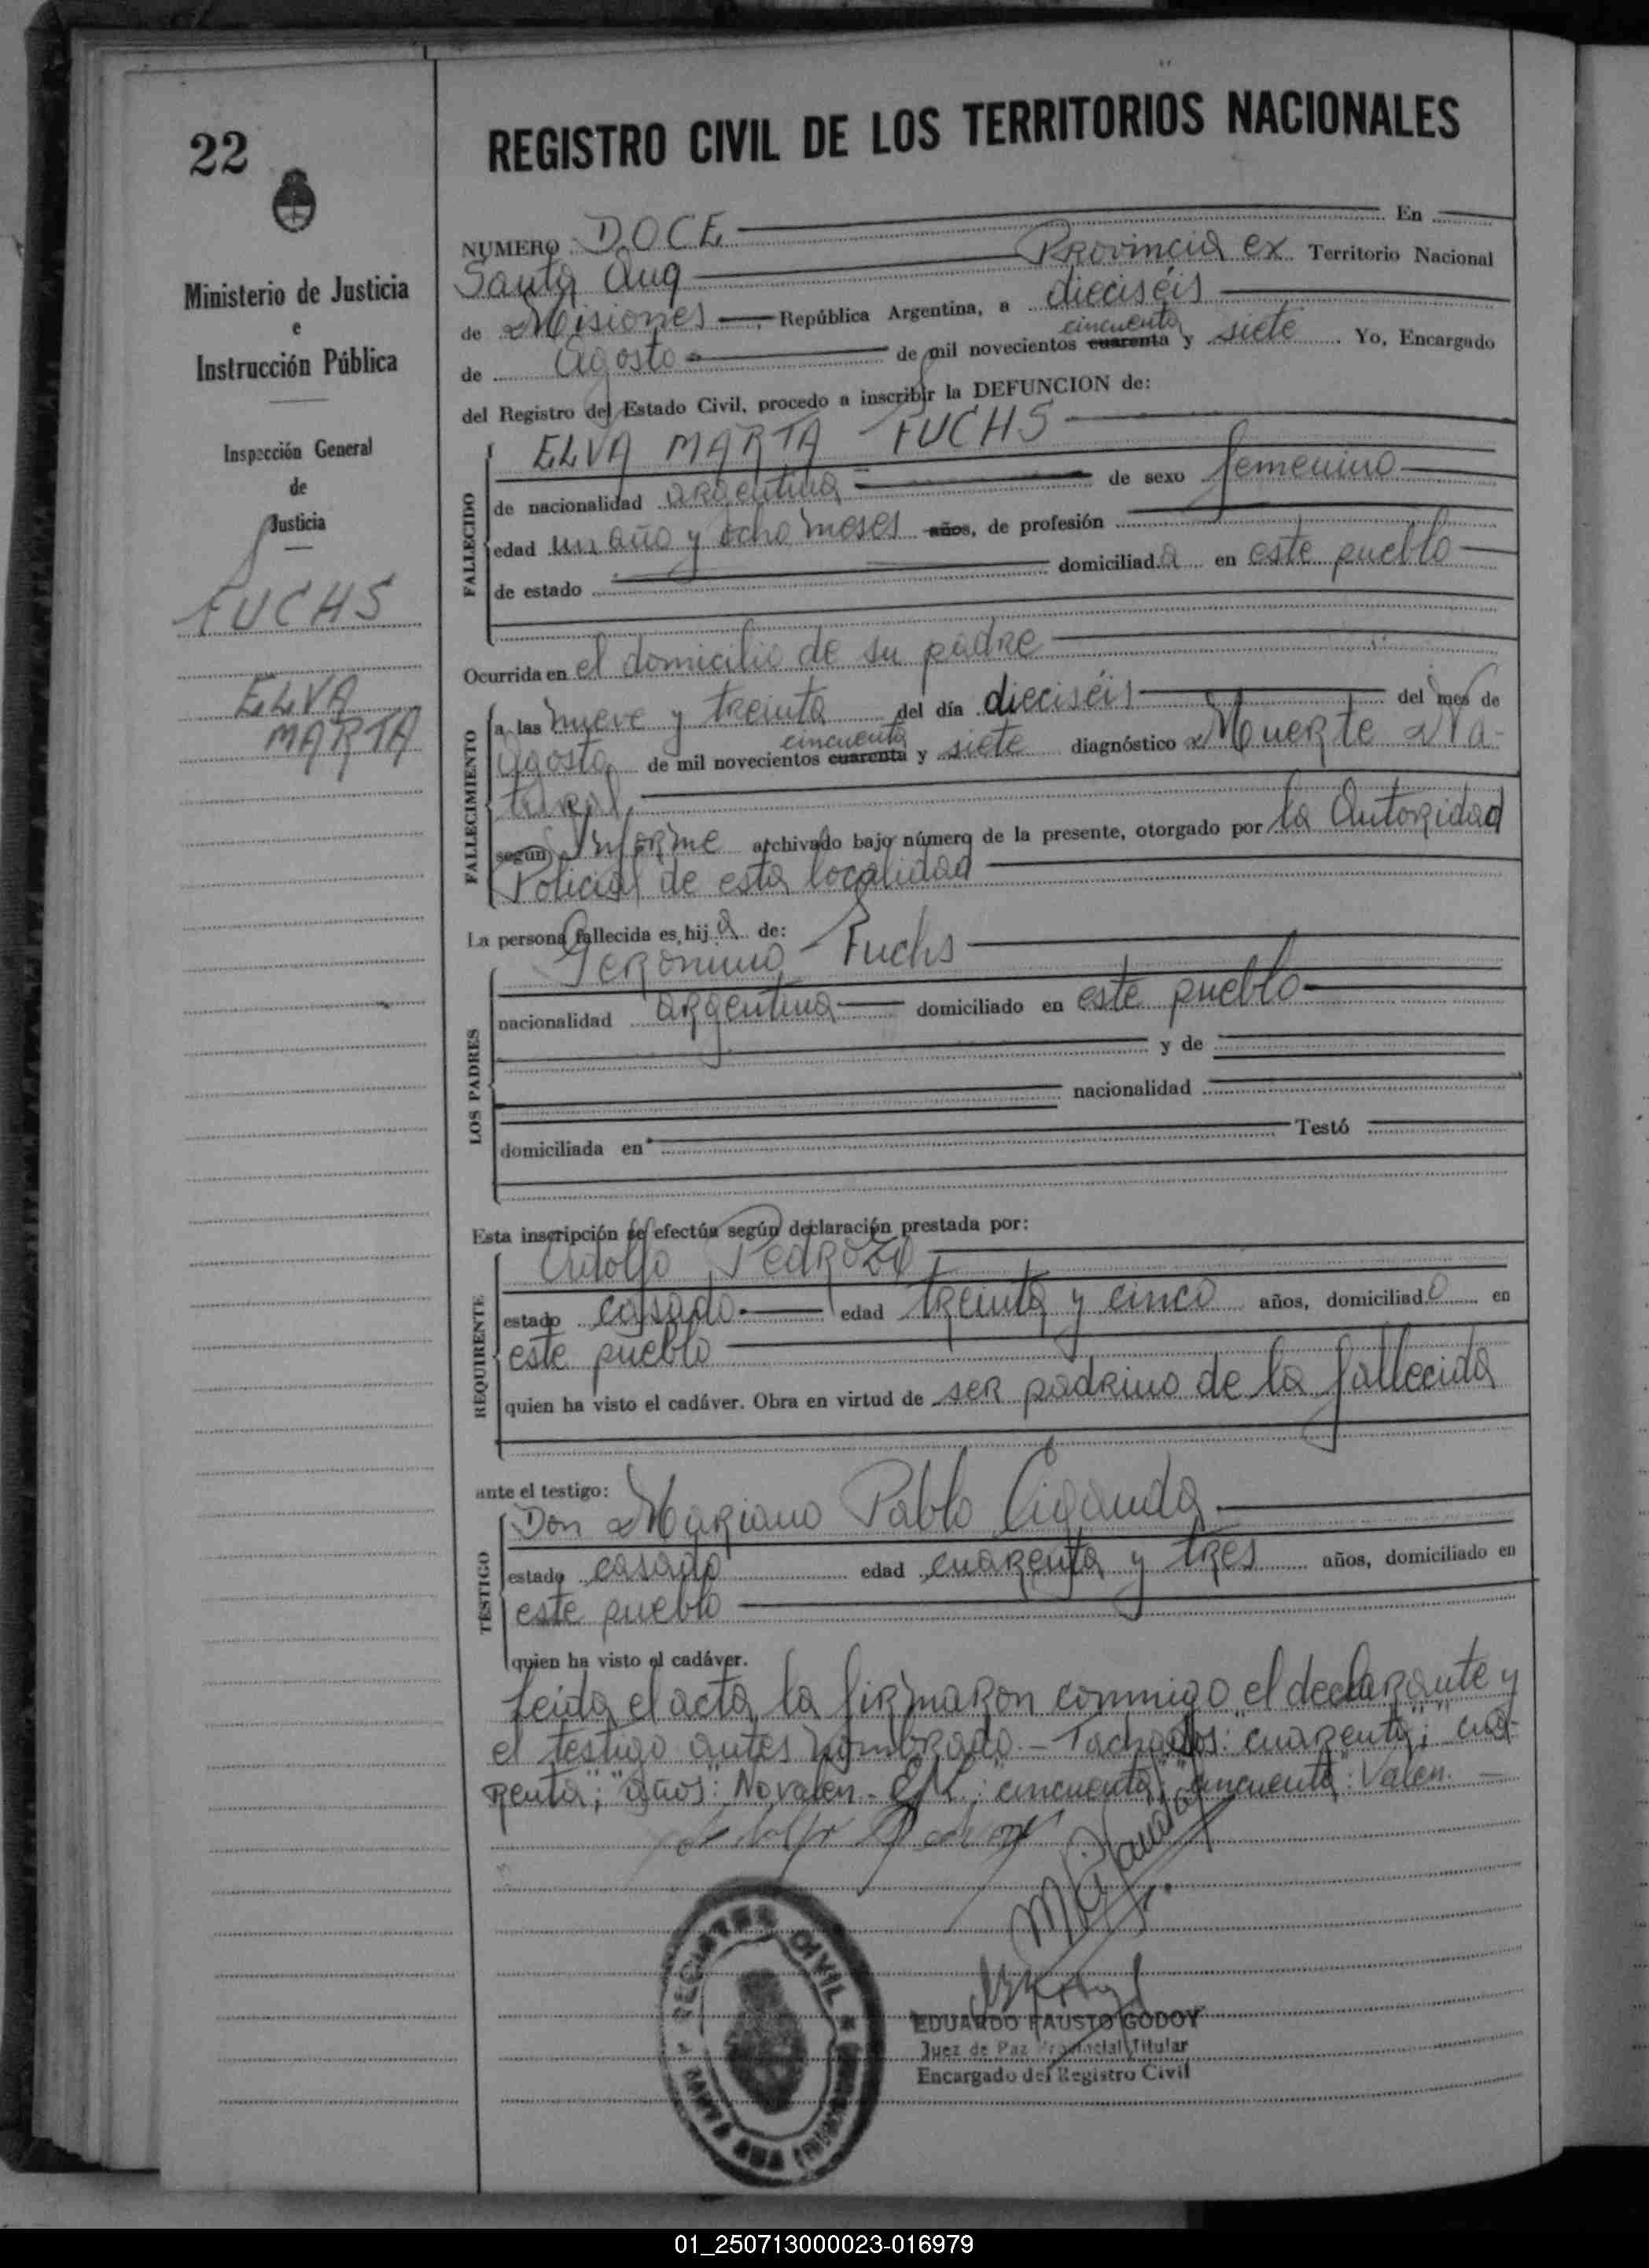 22
Ministerio de Justicia
e
Instrucción Pública
Inspección General
de
Justicia
FUCHS
ELVA
MARTA
REGISTRO CIVIL DE LOS TERRITORIOS NACIONALES
NUMERO DOCE En
Santa Ana Provincia ex Territorio Nacional
de Misiones, República Argentina, a dieciséis
cincuenta
de Agosto de mil novecientos cuarenta y siete. Yo, Encargado
del Registro del Estado Civil, procedo a inscribir la DEFUNCION de:
FALLECIDO
ELVA MARTA FUCHS
de nacionalidad argentina de sexo femenino
edad un año y ocho meses años, de profesión
de estado domiciliada en este pueblo
Ocurrida en el domicilio de su padre
FALLECIMIENTO
a las nueve y treinta del día dieciséis del mes de
cincuenta
Agosto de mil novecientos cuarenta y siete diagnóstico Muerte Na-
tural,
según Informe archivado bajo número de la presente, otorgado por la Autoridad
Policial de esta localidad
La persona fallecida es hija de:
LOS PADRES
Gerónimo Fuchs
nacionalidad argentina domiciliado en este pueblo
y de
nacionalidad
domiciliada en Testó
Esta inscripción se efectúa según declaración prestada por:
REQUIRENTE
Pedrozo
estado casado edad treinta y cinco años, domiciliado en
este pueblo
quien ha visto el cadáver. Obra en virtud de ser padrino de la fallecida
ante el testigo:
TESTIGO
Don Mariano Pablo Ciganda
estado casado edad cuarenta y tres años, domiciliado en
este pueblo
quien ha visto el cadáver.
Leida el acta, la firmaron conmigo el declarante y
el testigo antes nombrado.- Tachados: "cuarenta"; "cua-
renta"; "años": No valen.- E/L: "cincuenta"; "cincuenta": Valen.
EDUARDO FAUSTO GODOY
Juez de Paz Provincial Titular
Encargado del Registro Civil
CIVIL
SANTA ANA
01_250713000023-016979